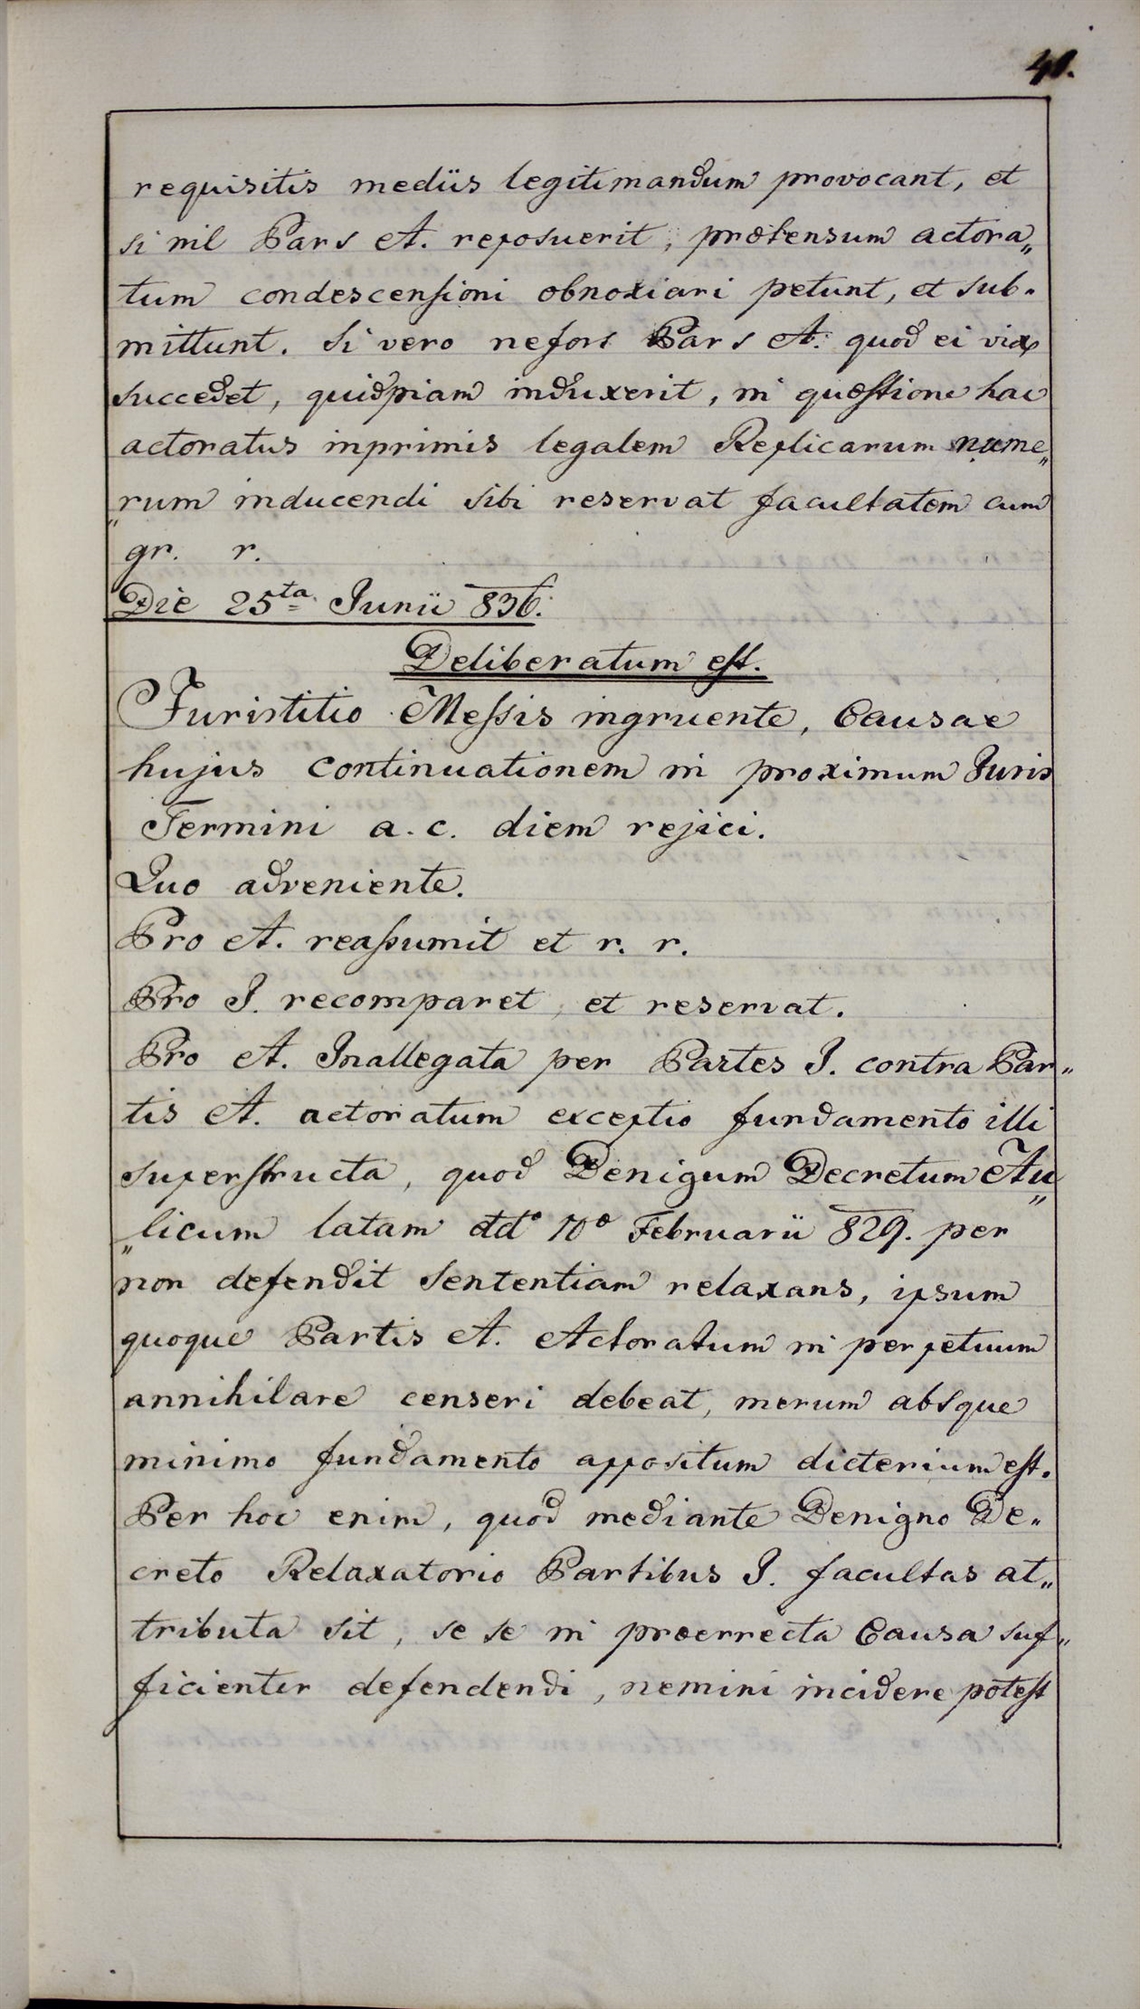 41.
requisitis mediis legitimandum provocant, et
si nil Pars A. reposuerit, prætensum actora„
tum condescensioni obnoxiari petunt, et sub„
mittunt. Si vero nefors Pars A. quod ei vix
succedet, quidpiam induxerit, in quæstione hac
actoratus inprimis legalem Replicarum nume„
„rum inducendi sibi reservat facultatem cum
gr. r.
Die 25ta Junii 836.
Deliberatum est.
Juristitio Messis ingruente, Causae
hujus continuationem in proximum Juris
Termini a. c. diem rejici.
Quo adveniente.
Pro A. reassumit et r. r.
Pro I. recomparet, et reservat.
Pro A. Inallegata per Partes I. contra Par„
tis A. actoratum exceptio fundamento illi
superstructa, quod Benigum Decretum Au„
„licum latam ddo 10o Februarii 829. per
non defendit sententiam relaxans, ipsum
quoque Partis A. Actoratum in perpetuum
annihilare censeri debeat, merum absque
minimo fundamento appositum dicterium est.
Per hoc enim, quod mediante Benigno De„
creto Relaxatorio Partibus I. facultas at„
tributa sit, se se in præerrecta Causa suf„
ficienter defendendi, nemini incidere potest